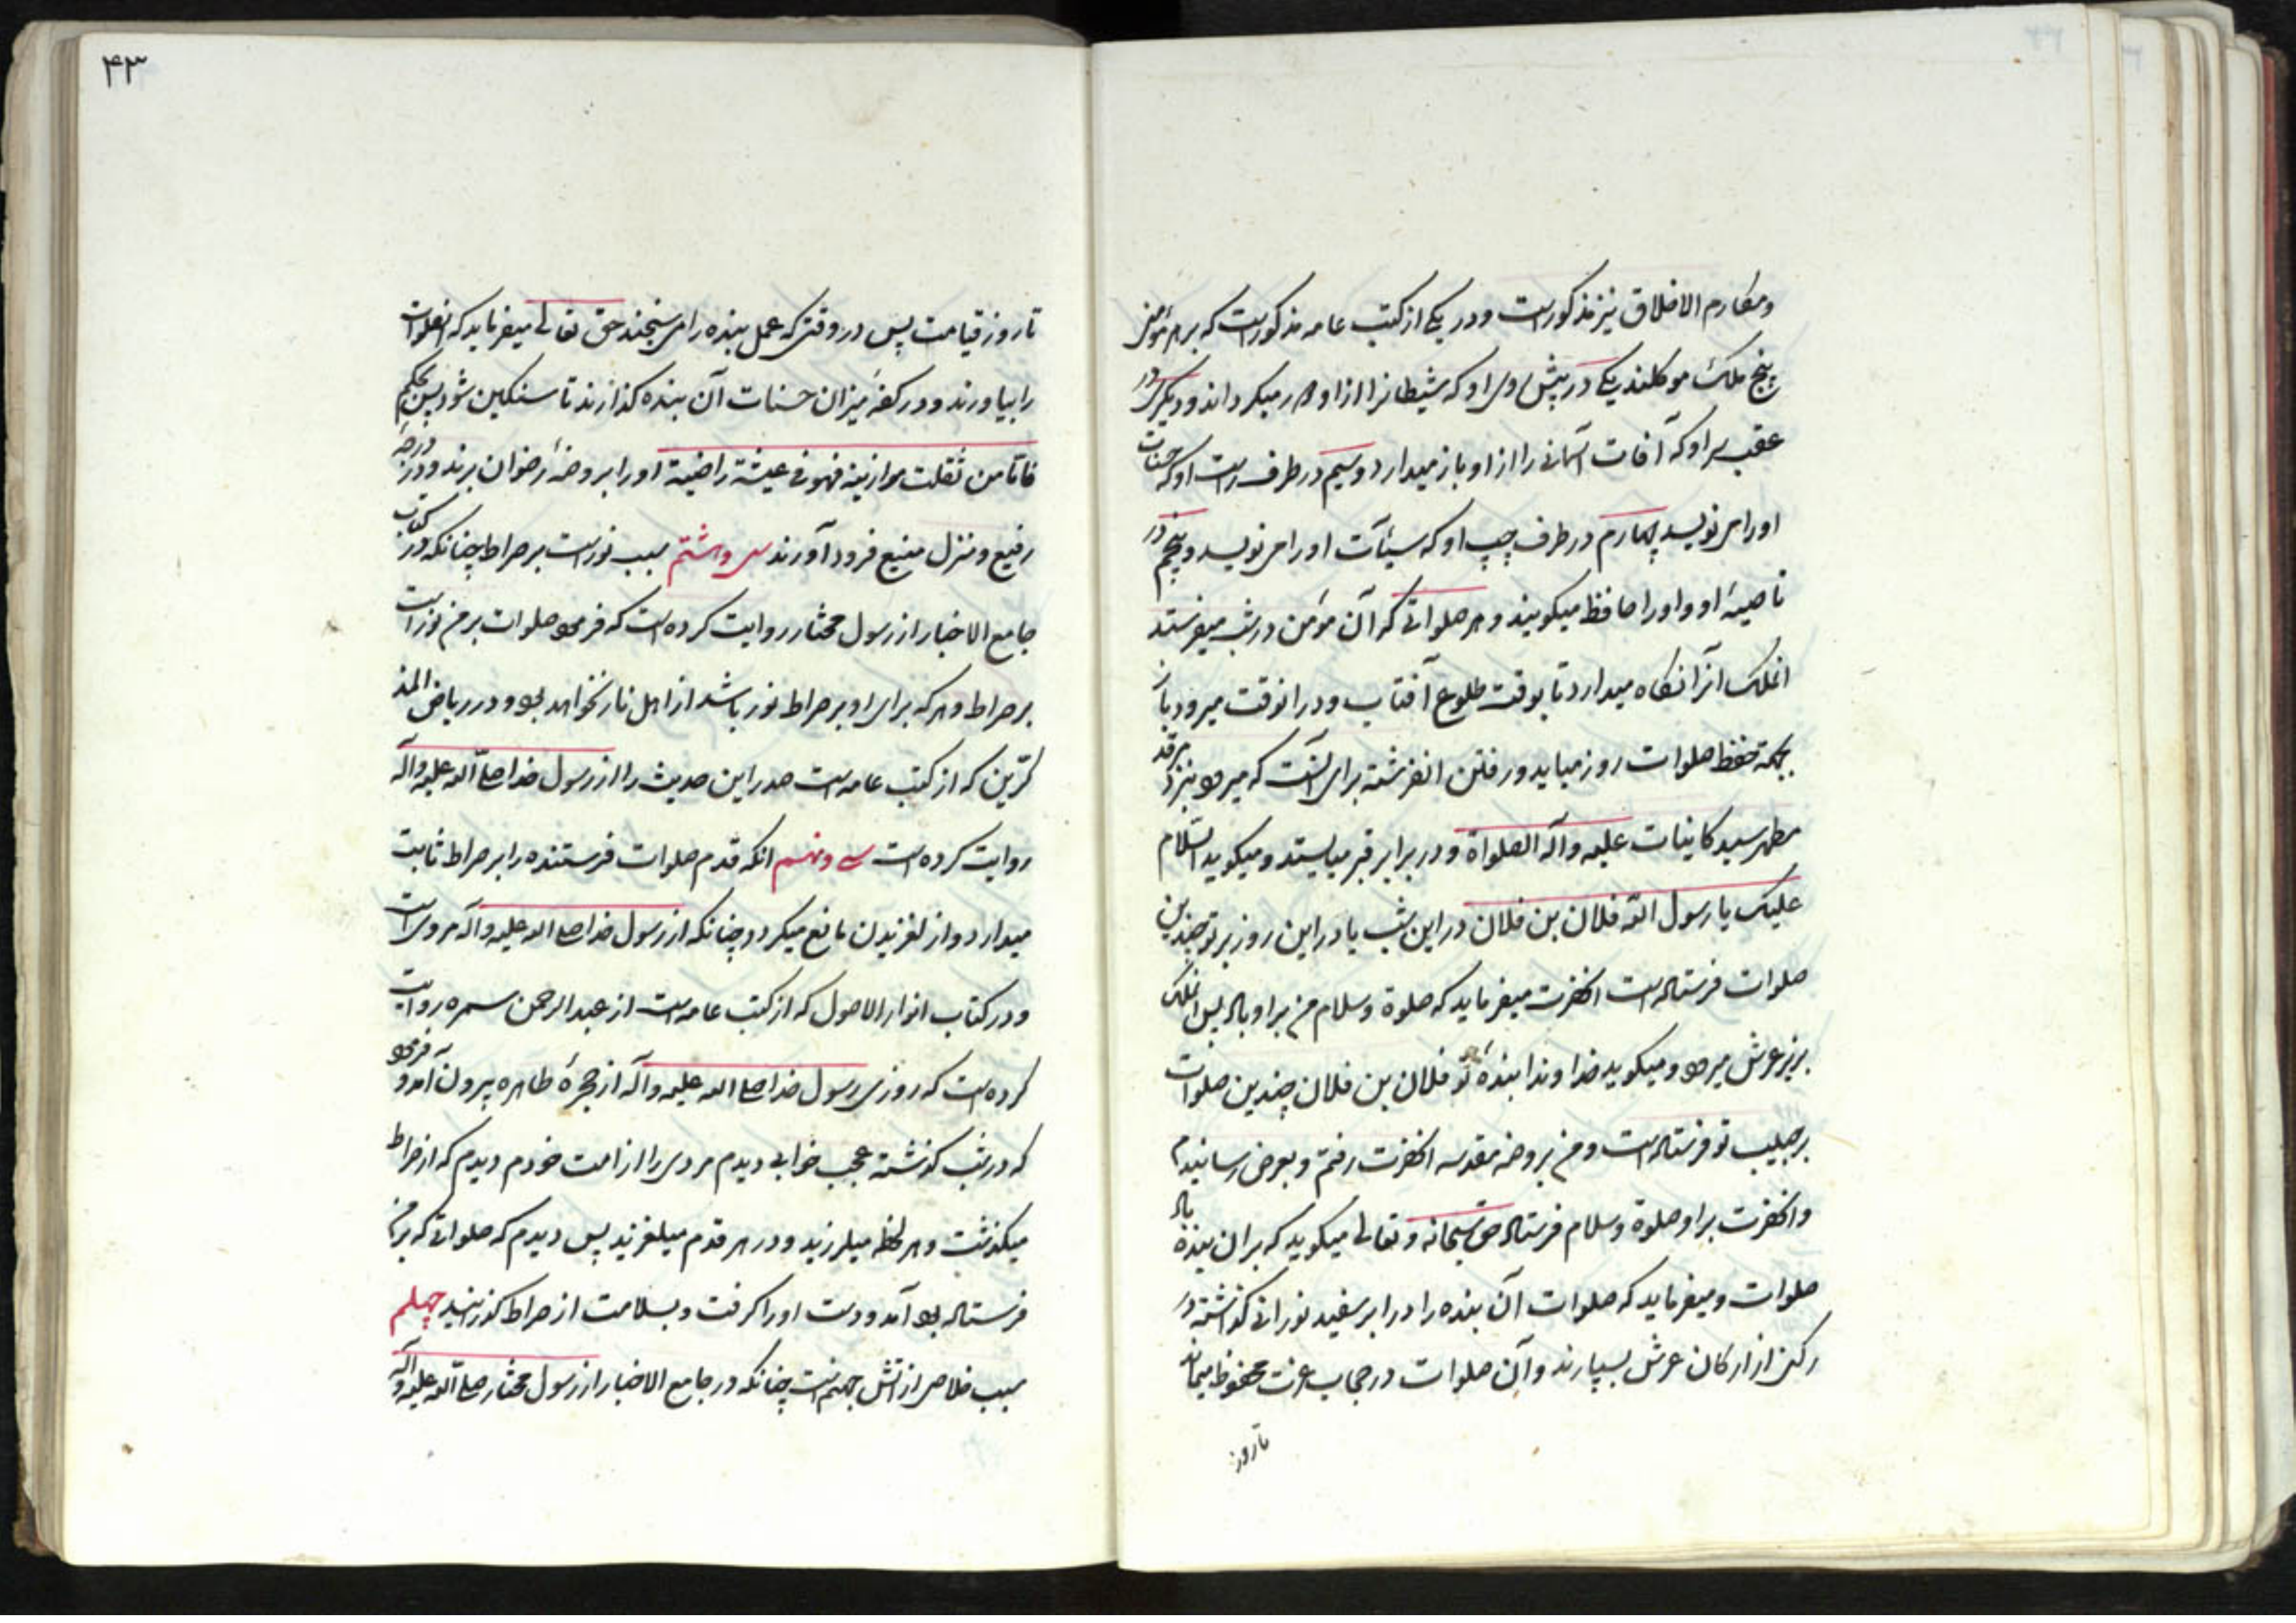 ومکارم الاخلاق نیز مذکور است و در یکی از کتب عامه مذکور است که بر هر مؤمن
پنج ملک موکلند یکی در پیش روی او که شیطانرا از او دور میکرداند و دیکری در
عقب سر او که آفات آسمانی را از او باز میدارد و سیم در طرف راست او که حسنات
او را می نویسد چهارم در طرف چپ او که سیئات او را می نویسد و پنجم در
ناصیهٔ او و او را حافظ میکویند و هر صلواتی که آن مؤمن در شب میفرستد
انملک آنرا نکاه میدارد تا بوقت طلوع آفتاب و در انوقت میرود باز
بجهة حفظ صلوات روز میاید و رفتن انفرشته برای آنست که میرود بنزد مرقد
مطهر سید کاینات علیه و آله الصلواة و در برابر قبر میایستد و میکوید السلام
علیک یا رسول الله فلان بن فلان در این شب یا در این روز بر تو چندین
صلوات فرستاده است انحضرت میفرماید که صلوة و سلام من بر او باد پس انملک
بزیر عرش میرود و میکوید خداوندا بندهٔ تو فلان بن فلان چندین صلوات
بر حبیب تو فرستاده است و من بروضه مقدسه انحضرت رفتم و بعرض رسانیدم
و انحضرت بر او صلوة و سلام فرستاد حق سبحانه و تعالی میکوید که بر ان بنده باد
صلوات و میفرماید که صلوات آن بنده را در ابر سفید نورانی کذاشته در
رکنی از ارکان عرش بسپارند و آن صلوات در حجاب عزت محفوظ میماند
تا روز
۴۳
تا روز قیامت پس در وقتی که عمل بنده را می سنجند حق تعالی میفرماید که انصلوات
را بیاورند و در کفهٔ میزان حسنات آن بنده کذارند تا سنکین شود پس بحکم
فاتا من ثقلت موازینه فهو فی عیشة راضیة او را بروضهٔ رضوان برند و در درجه
رفیع و منزل منیع فرود آورند سی و هشتم سبب نور است بر صراط چنانکه در کتاب
جامع الاخبار از رسول مختار روایت کرده است که فرمود صلوات بر من نور است
بر صراط و هر که برای او بر صراط نور باشد از اهل نار نخواهد بود و در ریاض المذ
کرین که از کتب عامه است صدر این حدیث را از رسول خدا صلی الله علیه و آله
روایت کرده است سی و نهم انکه قدم صلوات فرستنده را بر صراط ثابت
میدارد و از لغزیدن مانع میکردد چنانکه از رسول خدا صلی الله علیه و اله مرویست
و در کتاب انوار الاصول که از کتب عامه است از عبد الرحمن سمره روایت
کرده است که روزی رسول خدا صلی الله علیه و آله از حجرهٔ طاهره بیرون آمد و فرمود
که در شب کذشته عجب خوابی دیدم مردی را از امت خودم دیدم که از صراط
میکذشت و هر لحظه میلرزید و در هر قدم میلغزید پس دیدم که صلواتی که بر من
فرستاده بود آمد و دست او را کرفت و بسلامت از صراط کذرانید چهلم
سبب خلاصی از آتش جهنم است چنانکه در جامع الاخبار از رسول مختار صلی الله علیه و آله